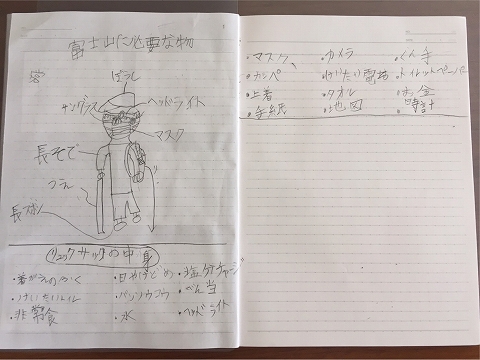 富士山に必要な物
ぼうし
サングラス
ヘッドライト
マスク
長そで
つえ
長ズボン
リュックサックの中身
・着がえの
・日やけどめ
・塩分チャージ
・けいたいトイレ
・べん当
・非常食
・水
・ヘッドライト
・マスク
・カメラ
・ぐん手
・カンペ
・けいたい電話
・トイレットペーパー
・上着
・タオル
・お金
・手紙
・地図
・時計